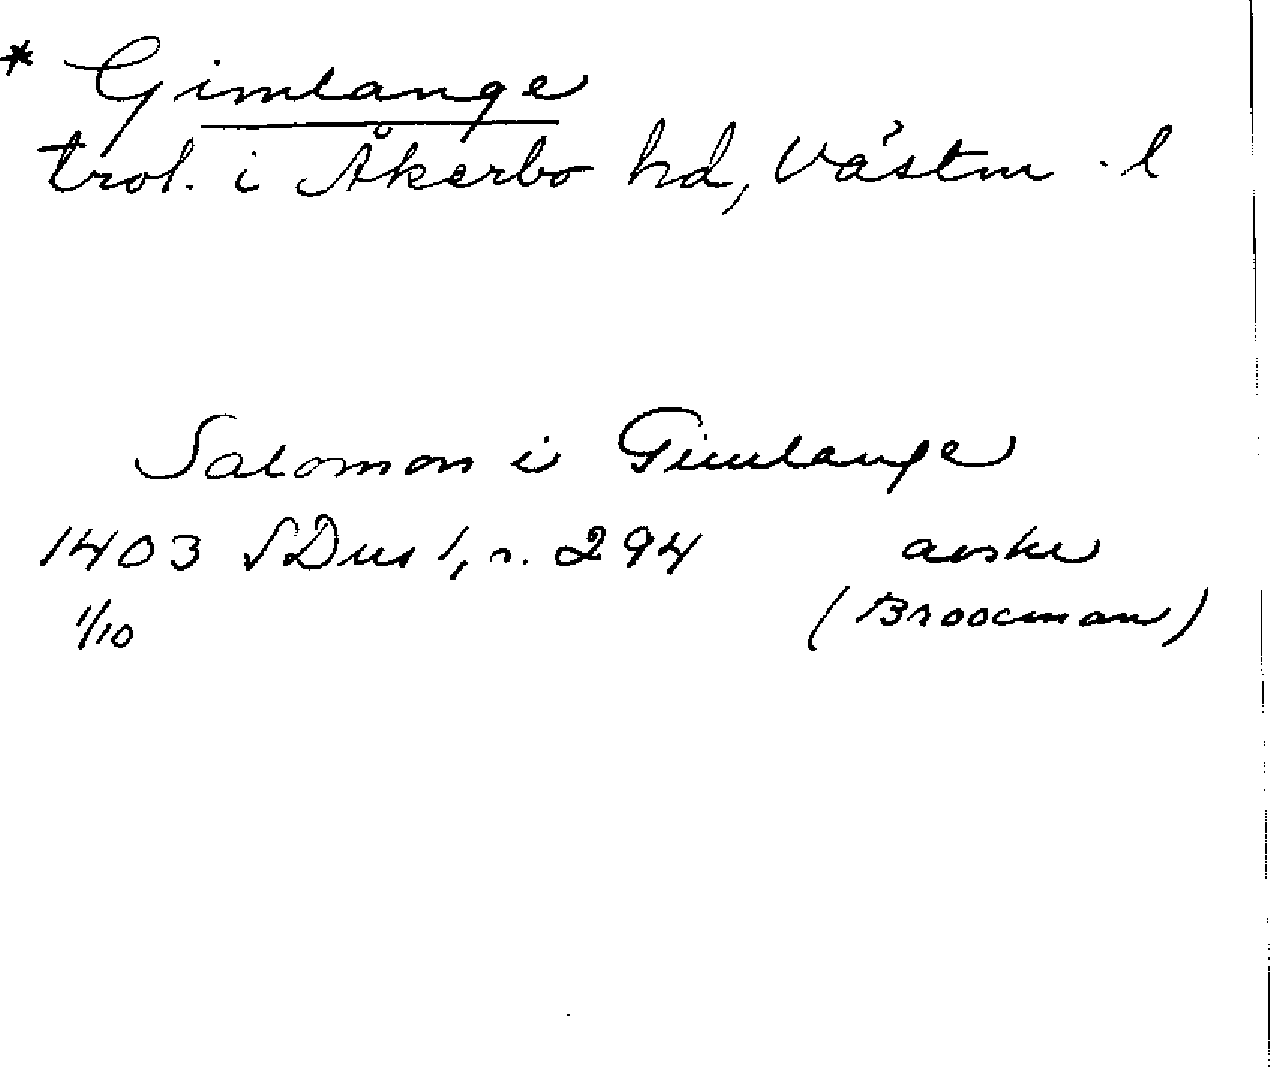 * Gimlange
trol. i Åkerbo hd, Västm. l
Salomon i Gimlange
1403 SDns 1, s. 294 avskr
1/10 (Broocman)